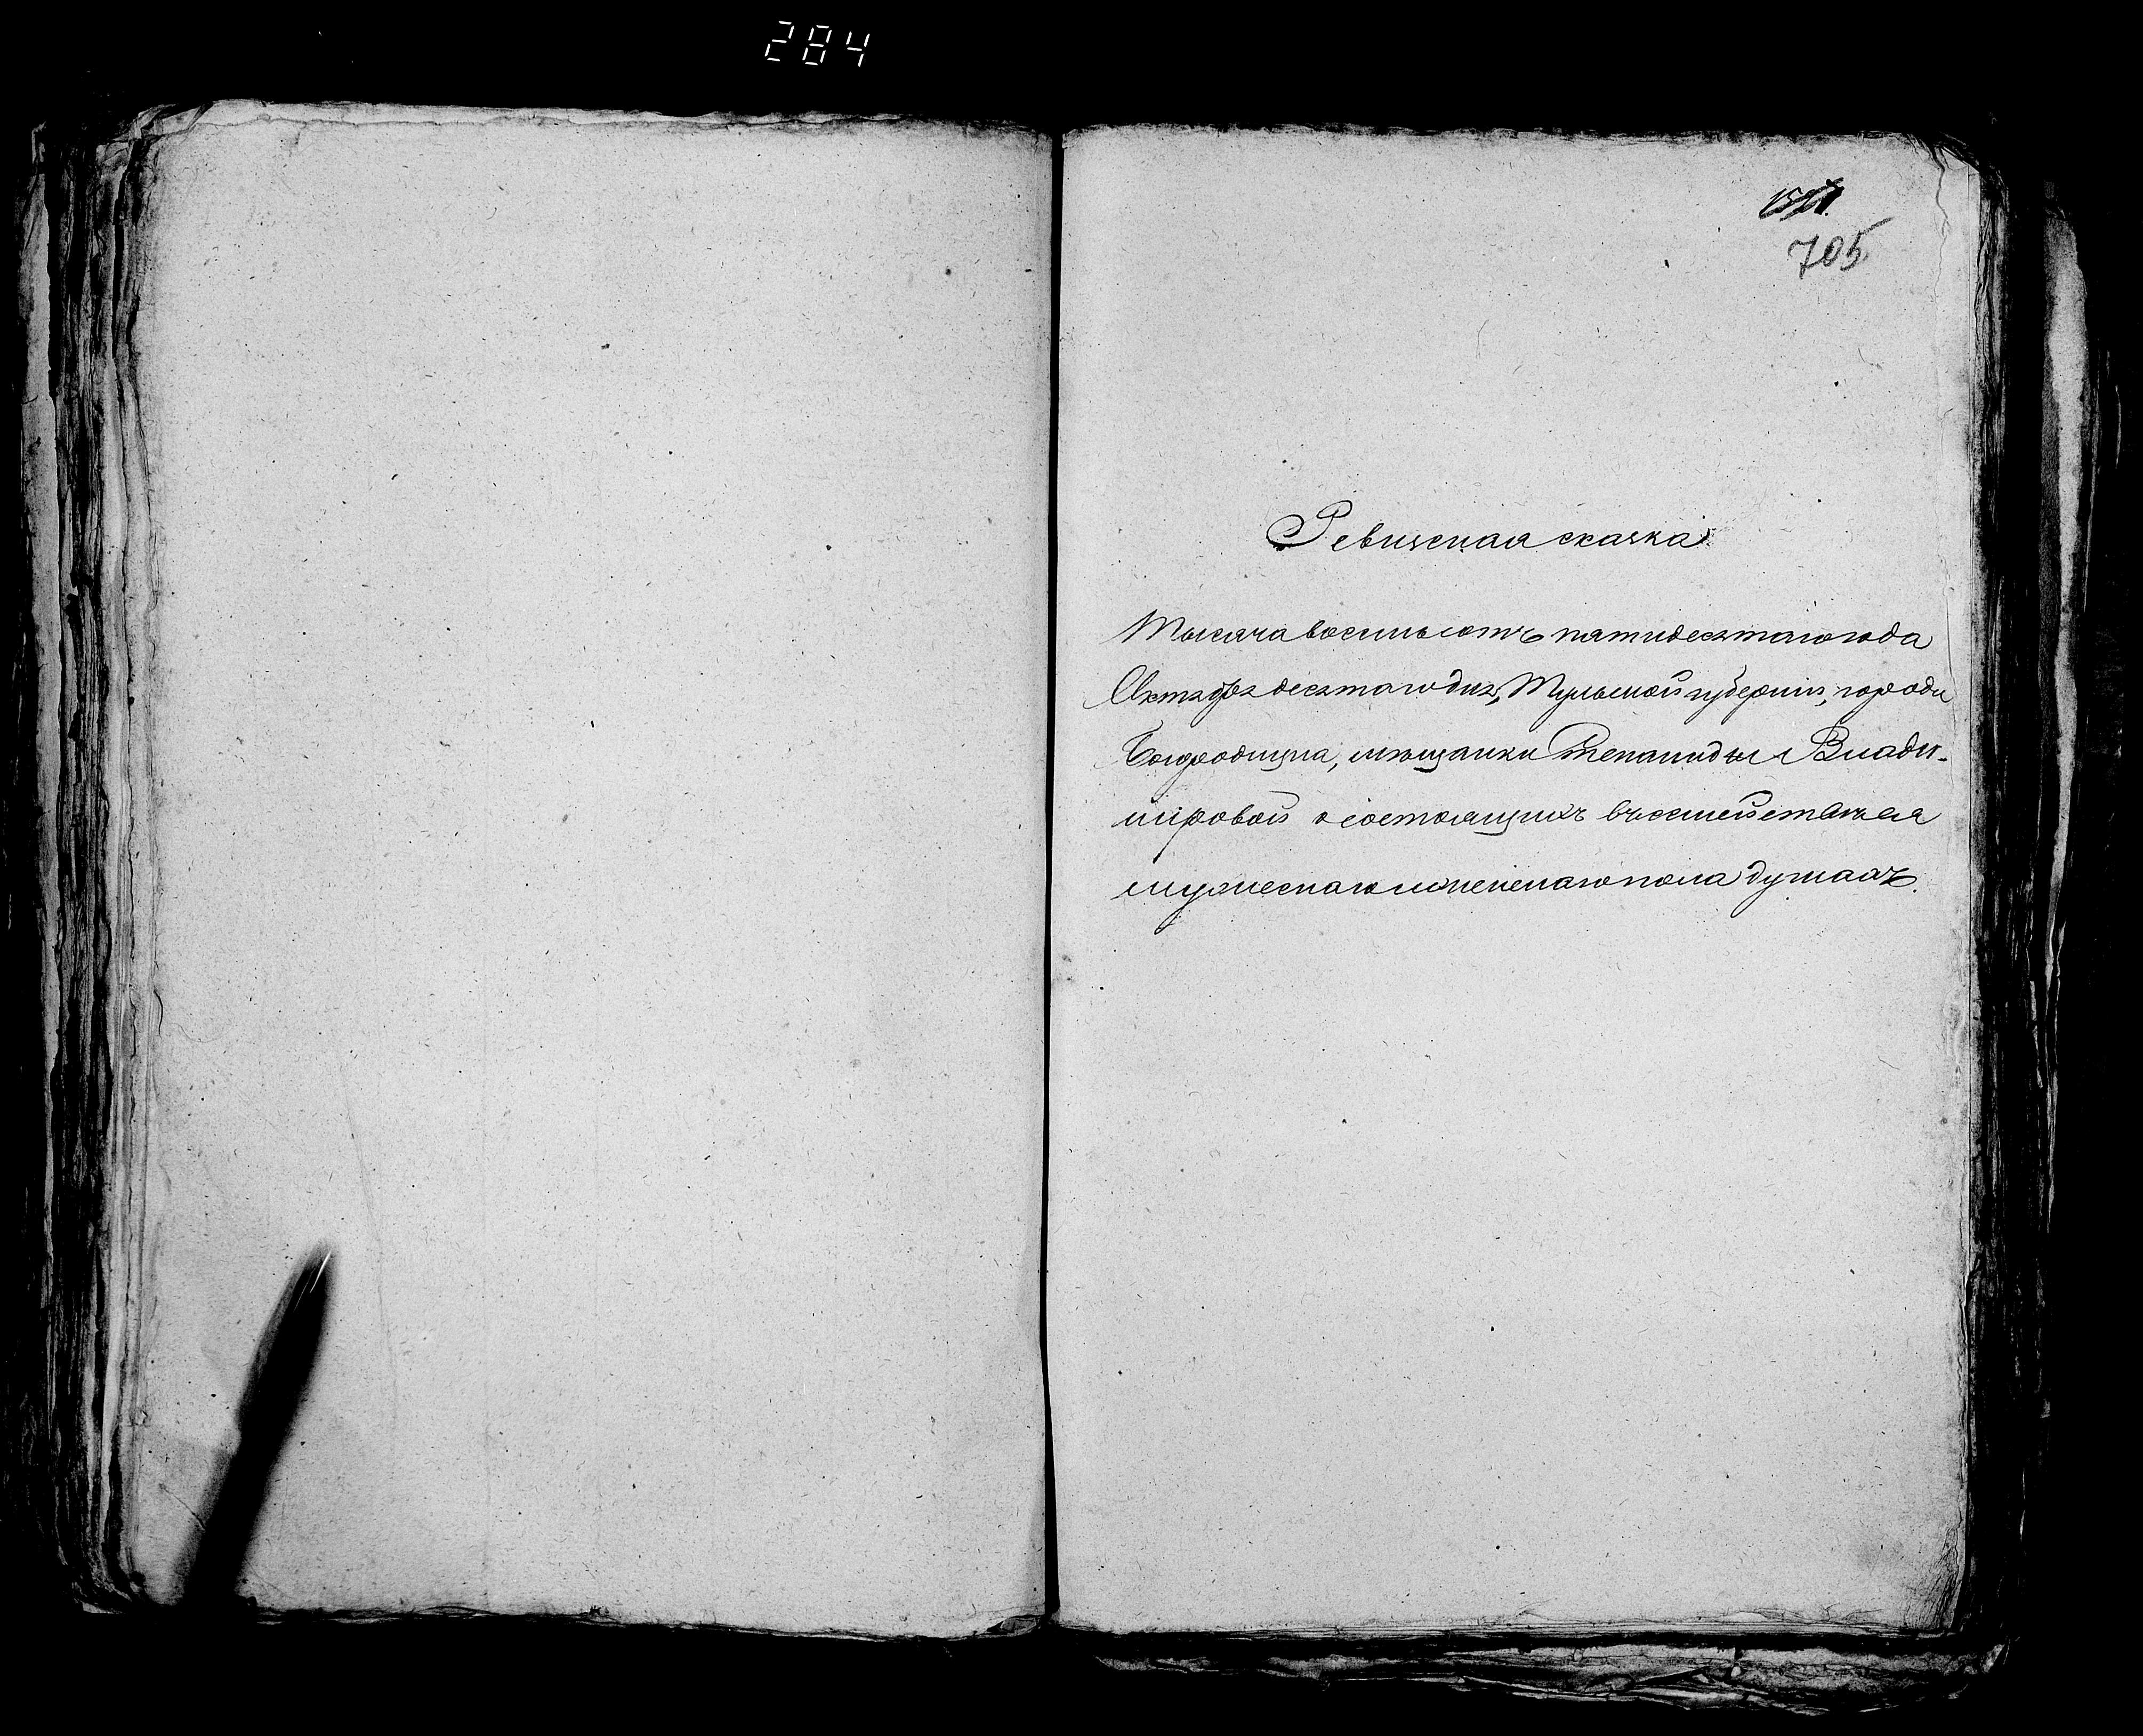 284
705
Ревизская сказка
Тысяча восемьсотъ пятидесятаго года
Октября десятаго дня, Тульской губернiи, города
Богородицка, мѣщанки Степаниды Влади-
мiровой о состоящихъ въ семействѣ ея
мужескаго и женскаго пола душахъ.